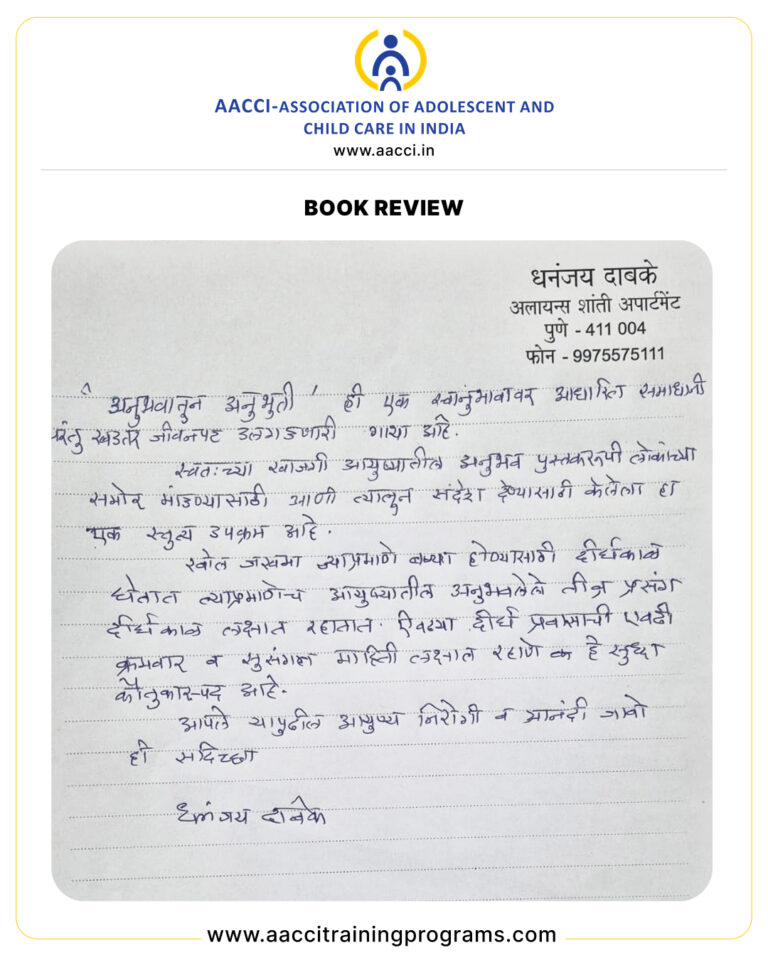 AACCI-ASSOCIATION OF ADOLESCENT AND
CHILD CARE IN INDIA
www.aacci.in
BOOK REVIEW
धनंजय दाबके
अलायन्स शांती अपार्टमेंट
पुणे - 411 004
फोन - 9975575111
' अनुभवातून अनुभुती ' ही एक स्वानुभावावर आधारित समाधानी
परंतु खडतर जीवनपट उलगडणारी गाथा आहे.
स्वतःच्या खाजगी आयुष्यातील अनुभव पुस्तकरूपी लोकांच्या
समोर मांडण्यासाठी आणी त्यातून संदेश देण्यासाठी केलेला हा
एक स्तुत्य उपक्रम आहे.
खोल जखमा ज्याप्रमाणे बऱ्या होण्यासाठी दीर्घकाळ
घेतात त्याप्रमाणेच आयुष्यातील अनुभवलेले तीव्र प्रसंग
दीर्घकाळ लक्षात रहातात. ऐवढ्या दीर्घ प्रवासाची एवढी
क्रमवार व सुसंगत माहिती लक्षात रहाणे हे सुध्दा
कौतुकास्पद आहे.
आपले यापुढील आयुष्य निरोगी व आनंदी जावो
ही सदिच्छा
धनंजय दाबके
www.aaccitrainingprograms.com